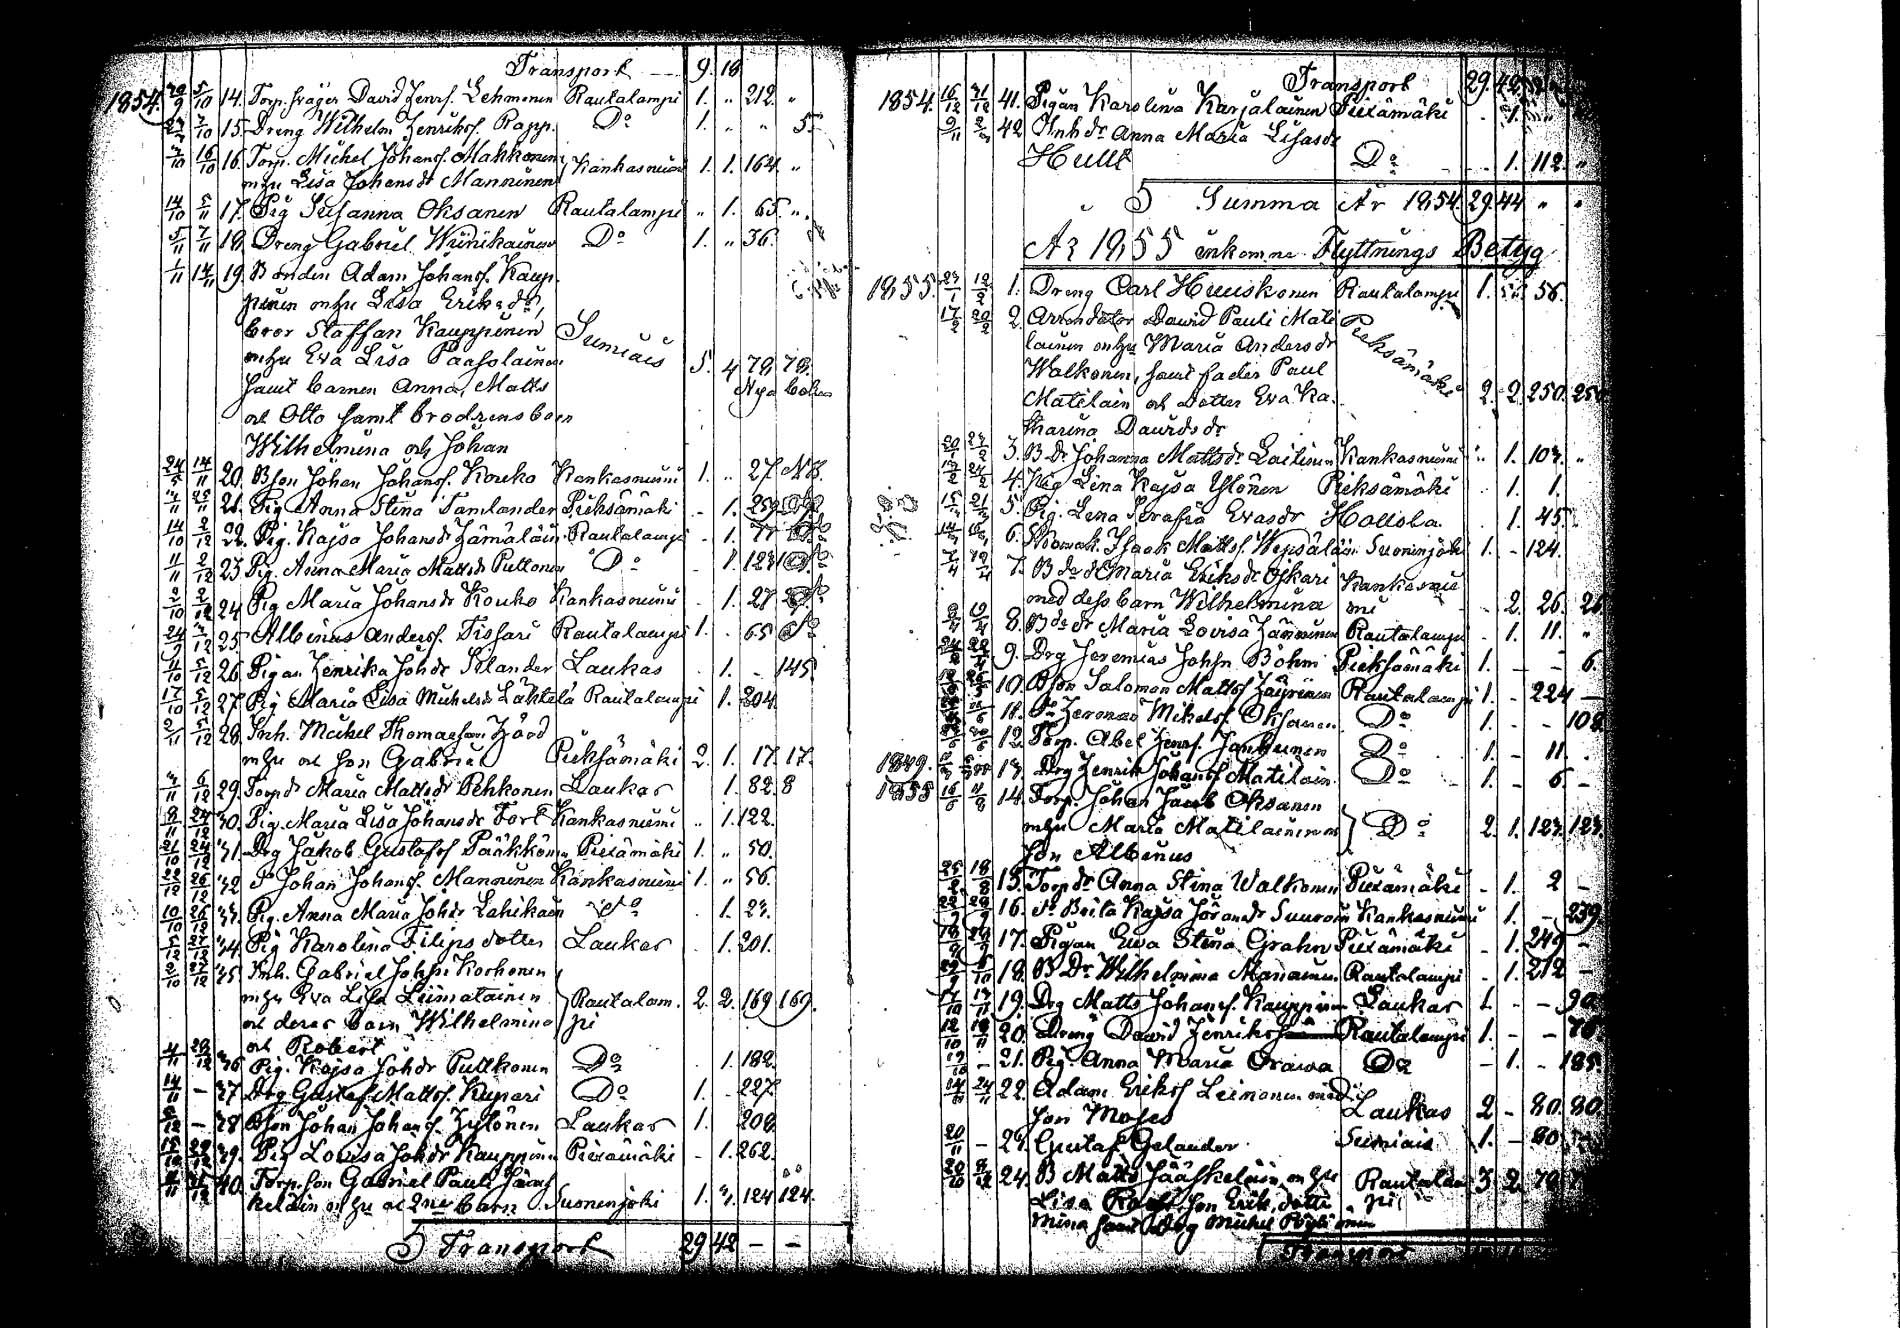 Transport 9. 18
1854. 29/9 5/10 14. Torp. sväger David Henrs. Lehmonen Rautalampi 1. „ 212. „
7/10 15. Dreng Wilhelm Henrikss. Rapp. Do 1. „ „ 5.
16/10 16. Torp. Michel Johanss. Makkonen
m hu Lisa Johansdr Manninen Kankasniemi 1. 1. 164. „
14/10 5/11 17. Pig Susanna Oksanen Rautalampi „ 1. 65. „
5/11 7/11 18. Dreng Gabriel Do 1. „ 36.
19. Bonden Adam Johans. Kaup-
pinen m hu Lisa Eriksdr,
bror Staffan Kauppinen
m hu Eva Lisa Paasolainen Sumiais 5. 4 78 78.
samt barnen Anna, Matts
och Otto samt brodrens barn
Wilhelmina och Johan
24/5 14/11 20. Bson Johan Johans. Kouko Kankasniemi 1. „ 27
21. Pig Anna Stina Tamlander Pieksämäki - 1. 259
14/10 2/12 22. Pig. Kajsa Johansdr Hämäläin Rautalampi - 1. 77
11/11 2/12 23 Pig. Anna Maria Mattsdr Puttonen Do - 1. 123
2/10 2/12 24 Pig Maria Johansdr Kouko Kankasniemi - 1. 27
25. Albinus Anders. Tissari Rautalampi 1. . 65
11/10 5/12 26 Pigan Henrika Johdr Silander Laukas . 1. . 145.
17/10 5/12 27 Pig Maria Lisa Michelsdr Lähtelä Rautalampi 1. 204.
2/11 5/12 28 Inh. Mickel Thomasson Hård
m hu och son Gabriel Pieksämäki 2. 1. 17. 17.
6/12 29. Torpdr Maria Mattsdr Pehkonen Laukas 1. 82. 8
30. Pig. Maria Lisa Johansdr Fort Kankasniemi „ 1. 122.
21/10 24/12 31. Drg Jakob Gustafss Pääkkönen Piexämäki 1. „ 50.
32 Do Johan Johans. Manninen Kankasniemi 1. „ 56.
10/10 26/12 33. Pig. Anna Maria Johdr Lahikain Do . 1. 23.
5/12 27/12 34 Pig Karolina Filips dotter Laukas . 1. 201.
2/10 27/12 35 Inh. Gabriel Johss Korhonen
m hu Eva Lisa Liimatainen Rautalam- 2. 2. 169 169.
och deras barn Wilhelmina pi
och Robert
4/11 28/12 36 Pig. Kajsa Johdr Puttonen Do . 1. 182.
14/11 - 37 Drg Gustaf Mattss. Kupari Do 1. . 227.
- 38 Bson Johan Johans. Hytönen Laukas 1. 208.
39. Pig Lovisa Johdr Kauppinen Piexämäki - 1. 262.
40. Torp. son Gabriel Paulss Jääs-
keläin m hu och 2ne barn Suonenjoki 1. 3. 124 124.
5 Transport 29 42 - -
Transport 29. 42
1854. 16/12 31/12 41. Pigan Karolina Karjalainen Piexämäki . 1.
42 Inhdr Anna Maria Lisasdr
Hullt Do - 1. 112 „
5 Summa År 1854. 29. 44 „ „
År 1855 inkomne Flyttnings Betyg
1855. 12/2 1. Dreng Carl Huuskonen Rautalampi 1. 56.
17/2 20/2 2. Arrendator David Pauls Mati-
lainen m hu Maria Andersdr
Walkonen, samt fader Paul Pieksämäki 2. 2. 250. 250
Matilain och dotter Eva Ka-
tharina Davidsdr
3. B Dr Johanna Mattsdr Laitinen Kankasniemi „ 1. 103. „
4. Pig Lina Kajsa Ylönen Pieksämäki . 1. 1.
5. Pig. Lena Serafia Evasdr Hollola. . 1. 45.
6. Isaak Mattss. Wepsäläin Suonenjoki 1. - 124.
7. Bde dr Maria Eriksdr Ojkari Kankasnie-
med dess barn Wilhelmina mi - 2. 26. 26.
8. Bde dr Maria Lovisa Hänninen Rautalampi - 1. 11. „
9. Drg Jeremias Johsn Böhm Pieksämäki 1. - - 6.
10. Bson Salomon Mattss Häyrinen Rautalampi 1. - 224 -
11. Do Herman Mikelss. Oksanen Do 1. - - 108
12. Torp. Abel Henrs. Jankunen Do 1. - 11. .
1849. 13. Drg Henrik Johanss Matilain. Do 1. - 6. -
1855 14. Torp. Johan Jacob Oksanen
m hu Maria Matilainen och Do 2. 1. 123. 123.
son Albinus
15. Torp dr Anna Stina Walkonen Piexämäki - 1. 2 -
16. Do Brita Kajsa Göransdr Suuroin Kankasniemi 1. - 239.
17. Pigan Ewa Stina Grahn Piexämäki - 1. 249 -
18. B Dr Wilhelmina Manninen Rautalampi - 1. 212 -
19. Drg Matts Johans. Kauppinen Laukas 1. - - 90.
20. Dreng David Henriks Rautalampi 1. - - 76.
- 21. Pig. Anna Maria Orawa Do - 1. - 185.
22. Adam Erikss Leinonen med
son Moses Laukas 2 - 80. 80.
20/11 - 23. Gustaf Gelander Sumiais 1. - 80
24. B Matts Jääskeläin, m hu Rautalam- 3 2. 70
Lisa son Erik, dotter pi
Mina samt Drg Michel
Transport